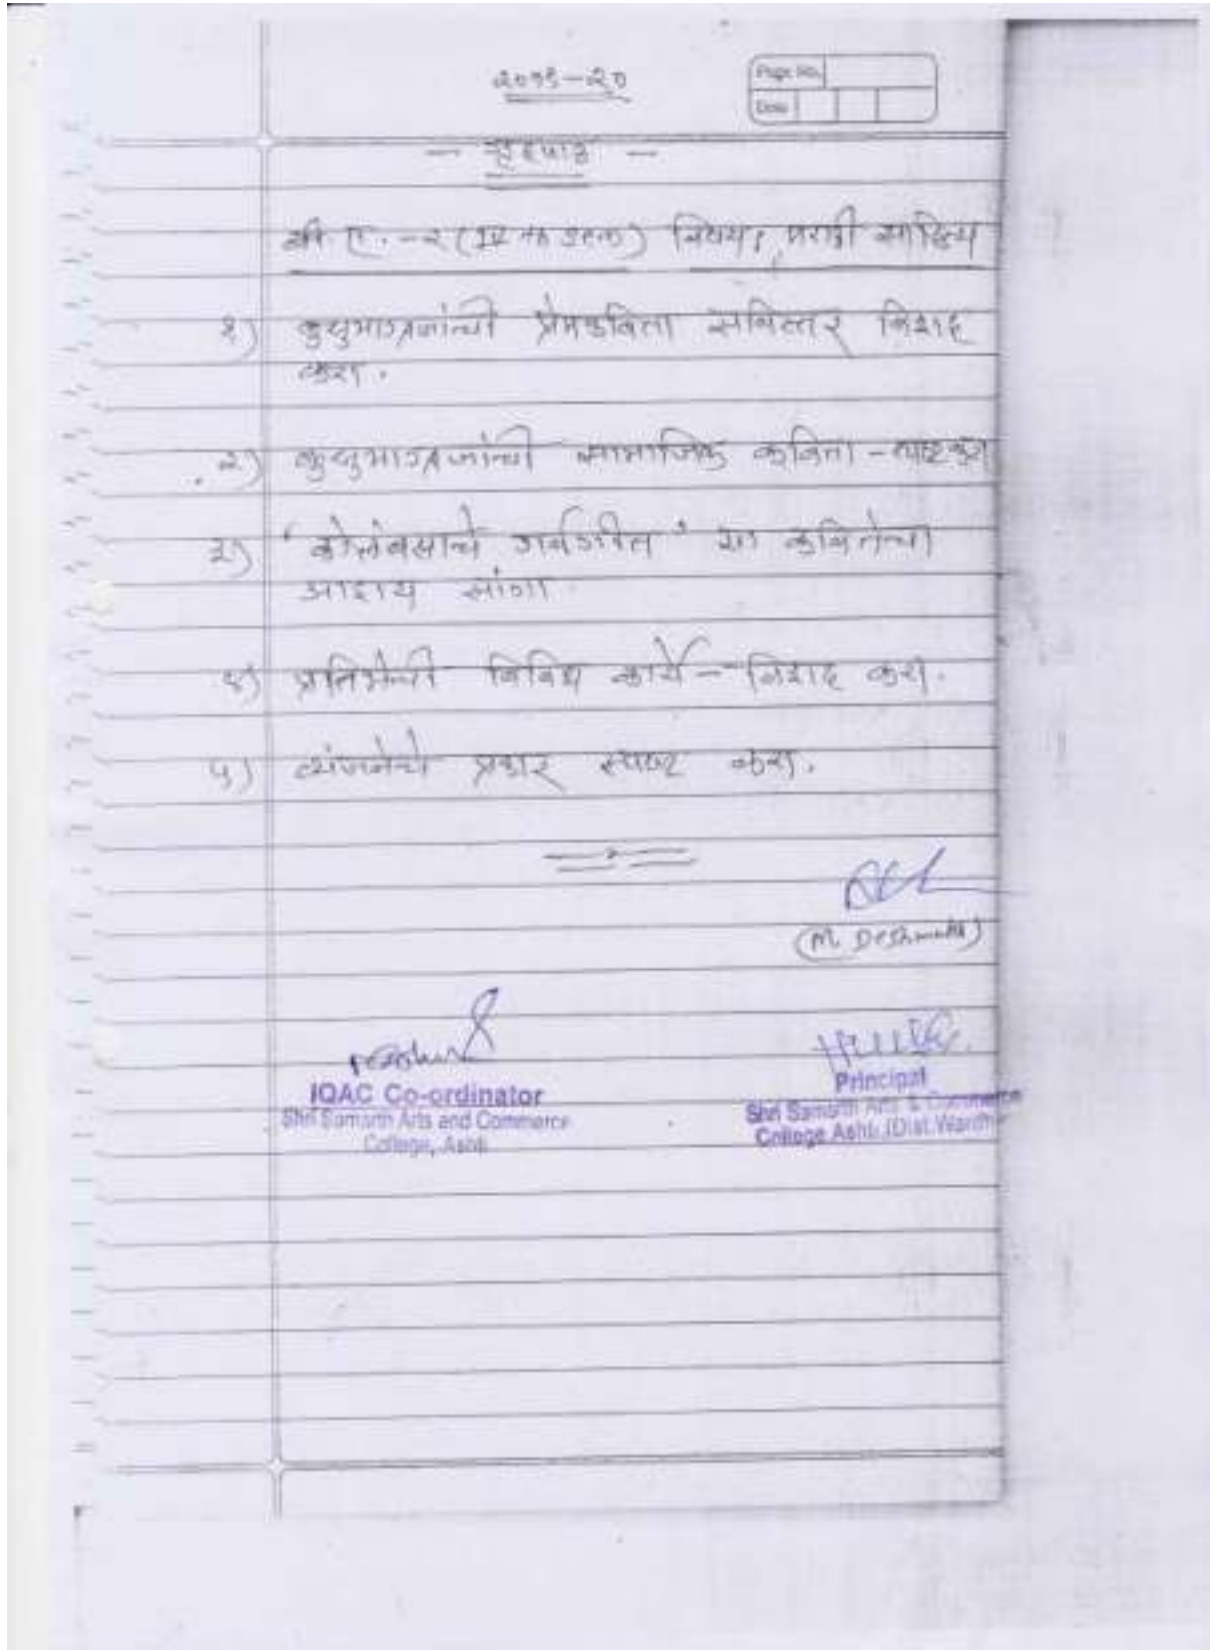 २०१९-२०
Page No.
Date
- गृहपाठ -
बी. ए. -२ (IV th Sem) विषय: मराठी साहित्य
१) कुसुमाग्रजांची प्रेमकविता सविस्तर विशद
करा.
२) कुसुमाग्रजांची सामाजिक कविता - स्पष्ट करा
३) 'कोलंबसाचे गर्वगीत' या कवितेचा
आशय सांगा.
४) प्रतिभेची विविध कार्ये - विशद करा.
५) व्यंजनेचे प्रकार स्पष्ट करा.
(M. Deshmukh)
IQAC Co-ordinator
Shri Samarth Arts and Commerce
College, Ashti
Principal
Shri Samarth Arts & Commerce
College Ashti (Dist. Wardha